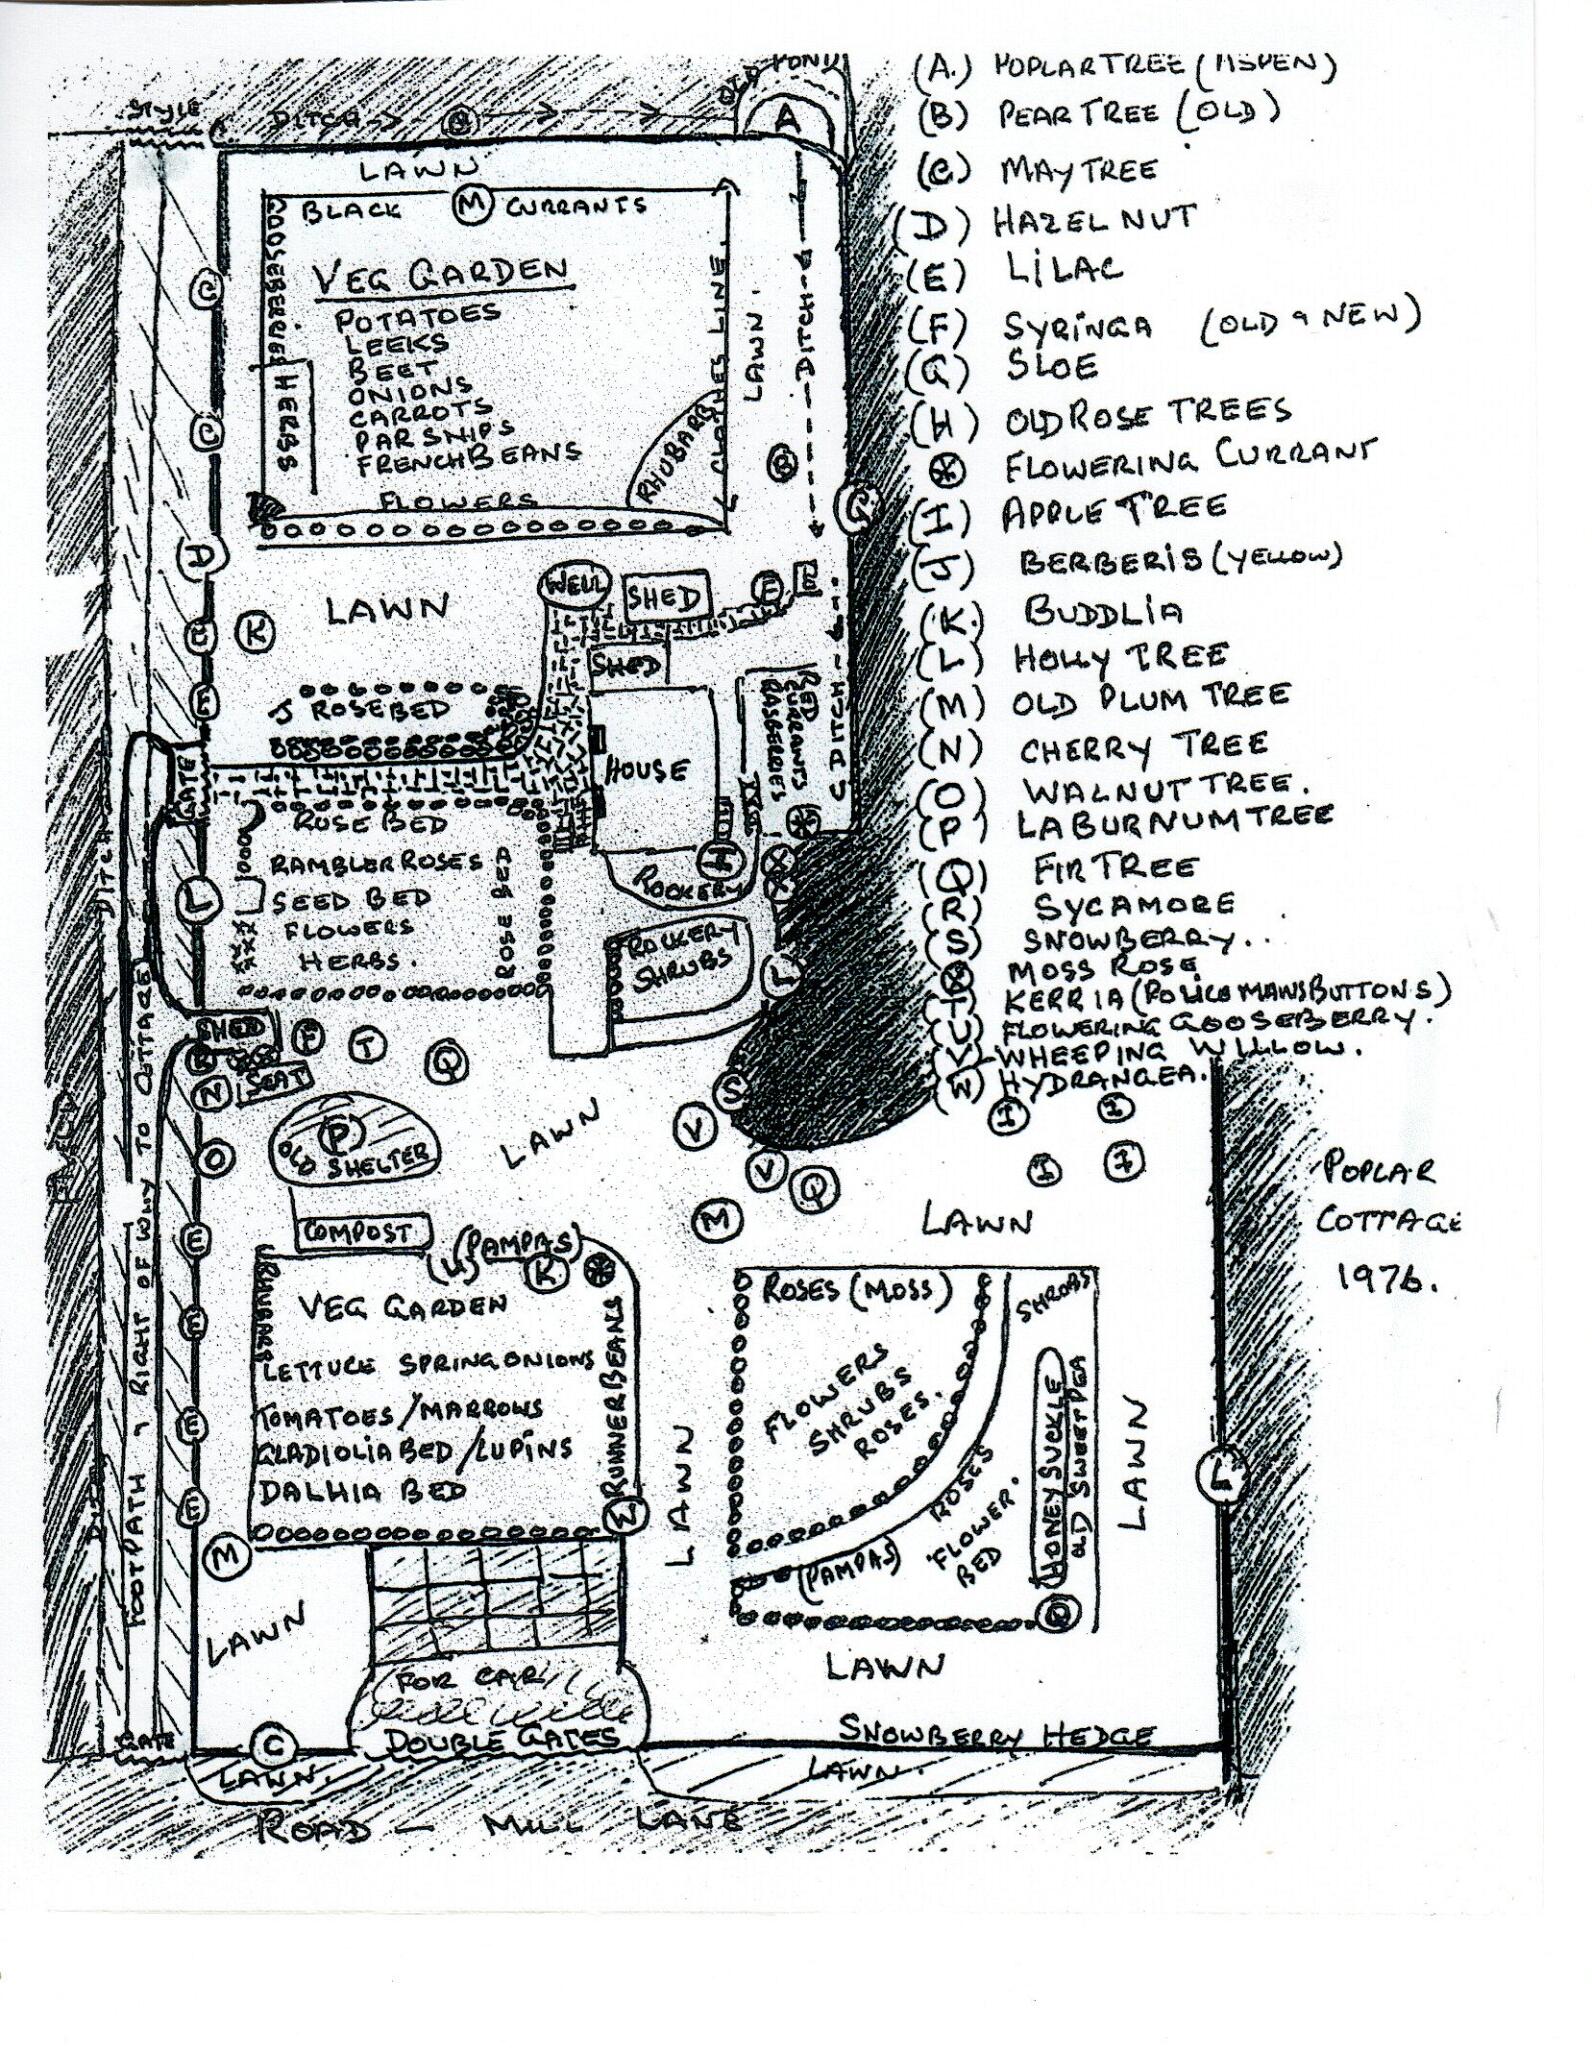 STYLE
DITCH
OLD POND
A
LAWN
BLACK M CURRANTS
GOOSEBERRIES
VEG GARDEN
POTATOES
LEEKS
BEET
ONIONS
CARROTS
PARSNIPS
FRENCH BEANS
HERBS
FLOWERS
RHUBARB
CLOTHES LINE.
LAWN.
DITCH
C
C
B
G
D
LAWN
WELL
SHED
E
K
SHED
E
J ROSE BED
HOUSE
RED CURRANTS
RASBERRIES
DITCH
GATE
ROSE BED
RAMBLER ROSES
SEED BED
FLOWERS
HERBS.
ROSE BED
L
H
ROCKERY
ROCKERY
SHRUBS
L
DITCH
SHED
R
F
T
Q
SEAT
N
O
P
OLD SHELTER
LAWN
S
V
V
Q
M
I
I
I
I
LAWN
FIELD
FOOTPATH & RIGHT OF WAY TO COTTAGE
COMPOST
(PAMPAS)
(U)
K
RHUBARB
VEG GARDEN
LETTUCE SPRING ONIONS
TOMATOES/MARROWS
GLADIOLIA BED/LUPINS
DALHIA BED
RUNNER BEANS
E
E
E
E
M
LAWN
LAWN
ROSES (MOSS)
FLOWERS
SHRUBS
ROSES.
SHRUBS
ROSES
FLOWER.
BED
(PAMPAS)
HONEY SUCKLE
OLD SWEET PEA
LAWN
L
LAWN
FOR CAR
DOUBLE GATES
SNOWBERRY HEDGE
GATE
C
LAWN.
LAWN.
ROAD — MILL LANE
(A.) POPLAR TREE (ASPEN)
(B) PEAR TREE (OLD)
(C) MAY TREE
(D) HAZEL NUT
(E) LILAC
(F) SYRINGA (OLD & NEW)
(G) SLOE
(H) OLD ROSE TREES
FLOWERING CURRANT
(I) APPLE TREE
(J) BERBERIS (YELLOW)
(K.) BUDDLIA
(L) HOLLY TREE
(M) OLD PLUM TREE
(N) CHERRY TREE
(O) WALNUT TREE.
(P) LABURNUM TREE
(Q) FIR TREE
(R) SYCAMORE
(S) SNOWBERRY..
MOSS ROSE
(T) KERRIA (POLICEMANS BUTTONS)
(U) FLOWERING GOOSEBERRY.
(V) WHEEPING WILLOW.
(W) HYDRANGEA.
POPLAR
COTTAGE
1976.